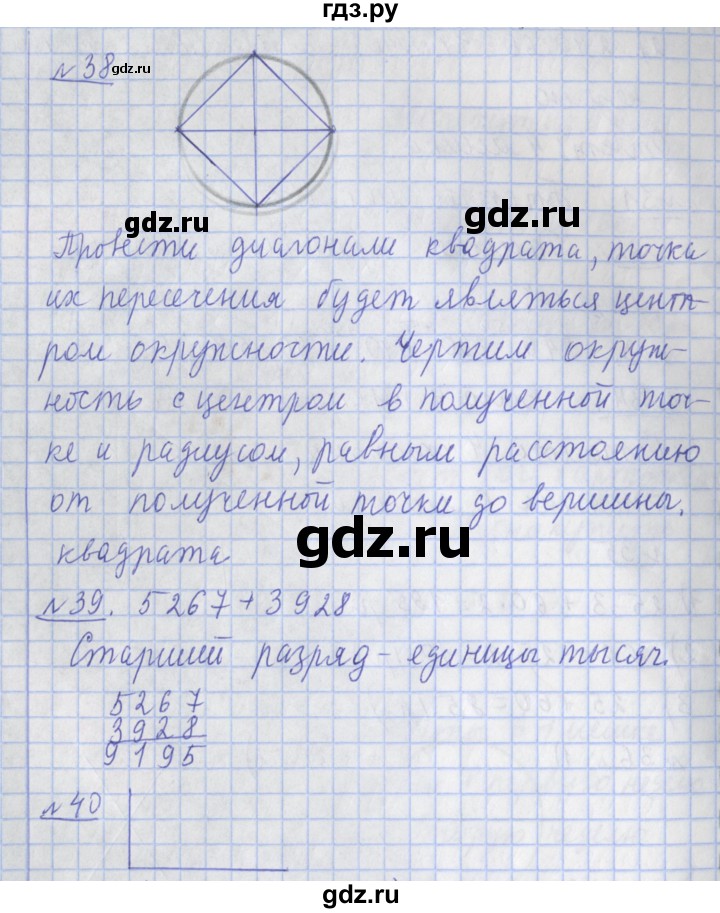 гдз.ру
№38
gdz.ru
gdz.ru
gdz.ru
Провести диагонали квадрата, точка
их пересечения будет являться цент-
ром окружности. Чертим окруж-
ность с центром в полученной точ-
ке и радиусом, равным расстоянию
от полученной точки до вершины,
квадрата
gdz.ru
№39. 5267+3928
Старший разряд - единицы тысяч.
5267
3928
9195
№40
gdz.ru